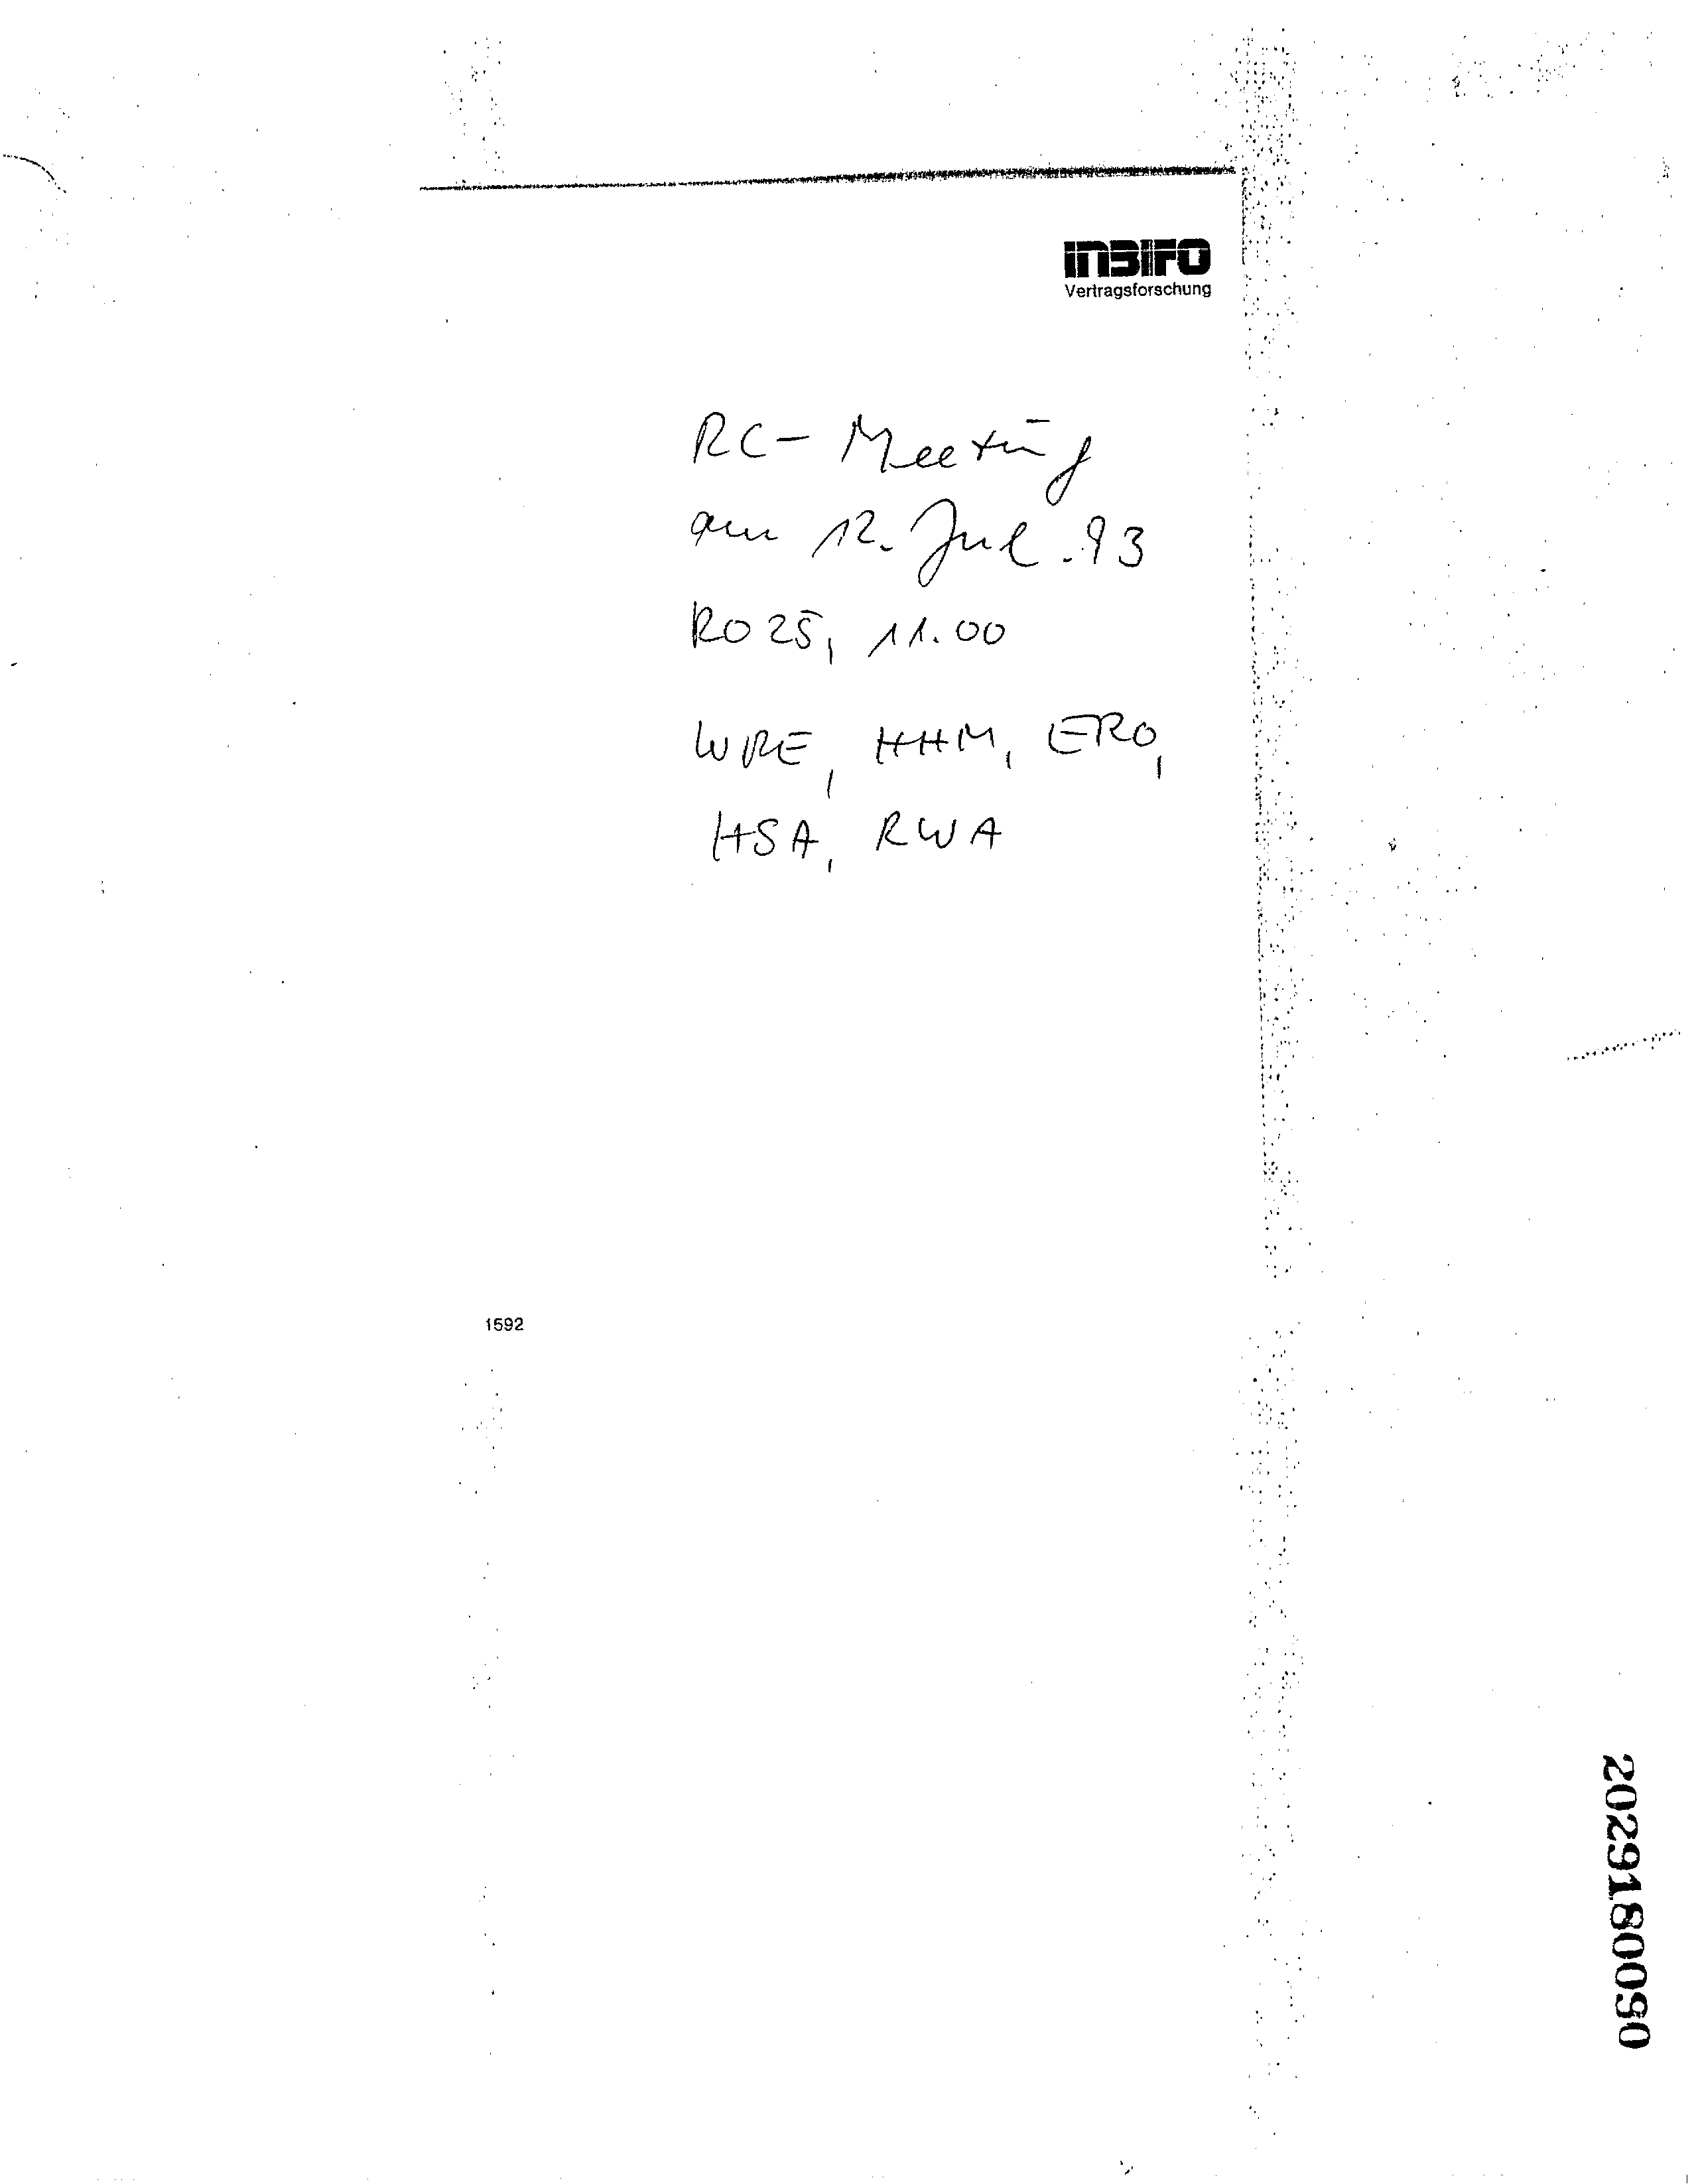 INBIFO
Vertragsforschung
RC- Meeting
am 12. Jul. 93
R025, 11.00
WRE, HHM, ERO,
HSA, RWA
1592
2029180090